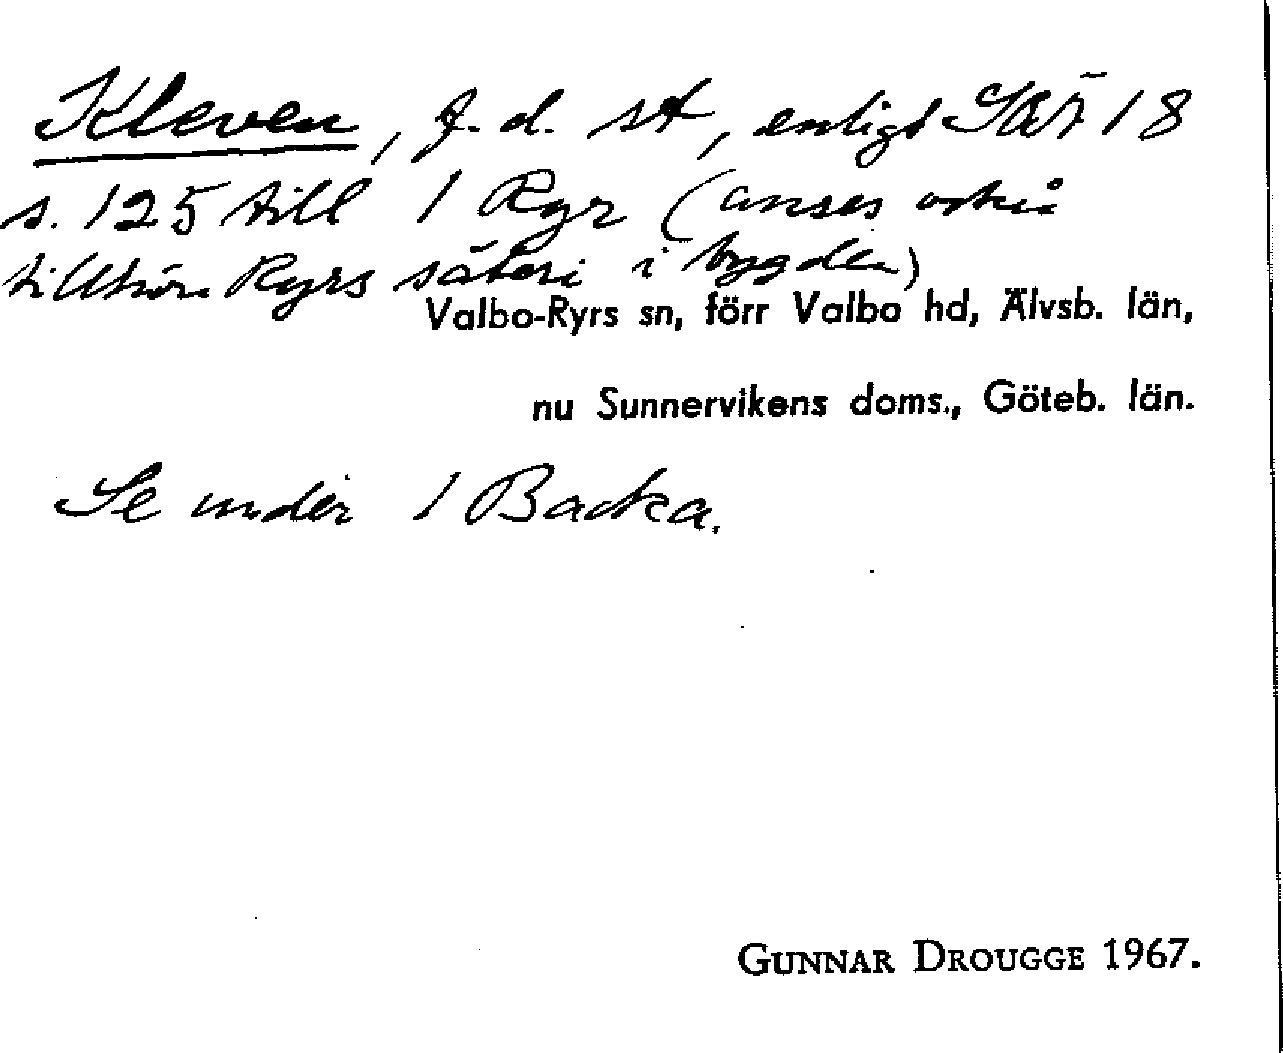 Kleven, f. d. st, enligt SOÄ 18
s. 125 till 1 Ryr (anses också
tillhöra Ryrs säteri i bygden)
Valbo-Ryrs sn, förr Valbo hd, Älvsb. län,
nu Sunnervikens doms., Göteb. län.
Se under 1 Backa.
GUNNAR DROUGGE 1967.